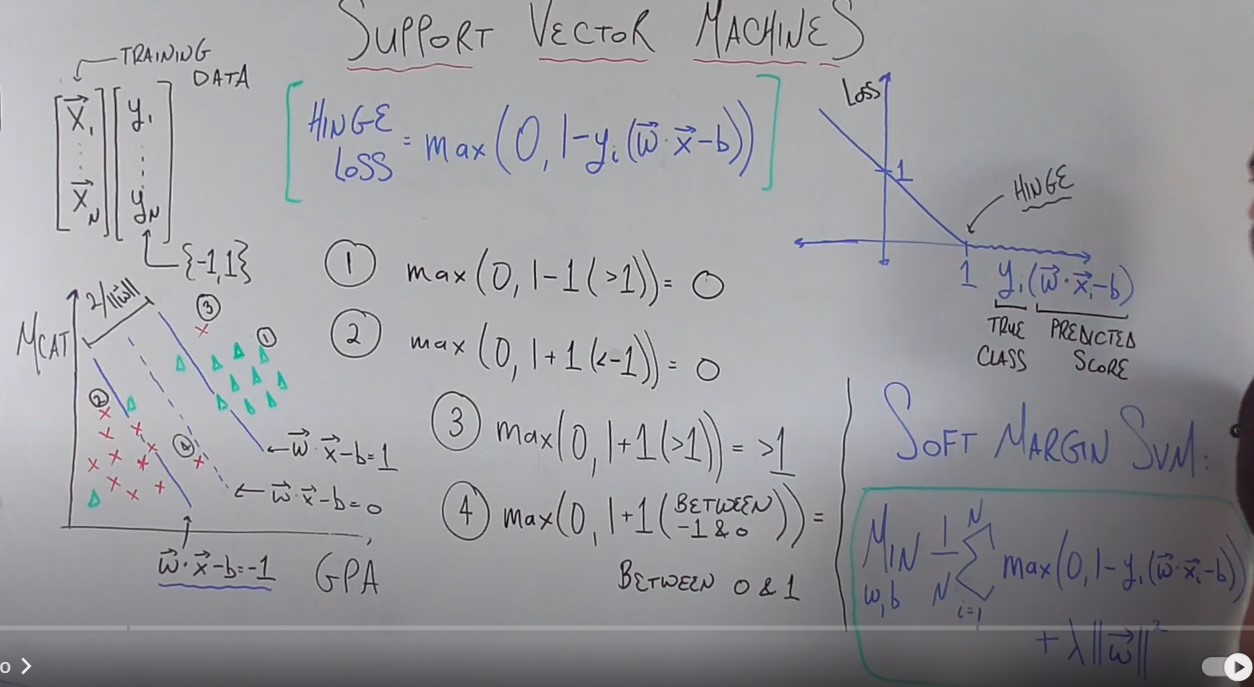 SUPPORT VECTOR MACHINES
TRAINING DATA
x⃗₁ y₁
x⃗_N y_N
{-1,1}
[HINGE LOSS = max(0, 1-yᵢ(w⃗·x⃗-b))]
LOSS
1
HINGE
1 yᵢ(w⃗·x⃗ᵢ-b)
TRUE CLASS
PREDICTED SCORE
① max(0, 1-1(>1)) = 0
② max(0, 1+1(<-1)) = 0
③ max(0, 1+1(>1)) = >1
④ max(0, 1+1(BETWEEN -1 & 0)) =
BETWEEN 0 & 1
2/||w⃗||
MCAT
③
①
②
④
w⃗·x⃗-b=1
w⃗·x⃗-b=0
w⃗·x⃗-b=-1
GPA
SOFT MARGIN SVM:
MIN w,b 1/N Σ i=1 N max(0, 1-yᵢ(w⃗·x⃗ᵢ-b))
+ λ||w⃗||²